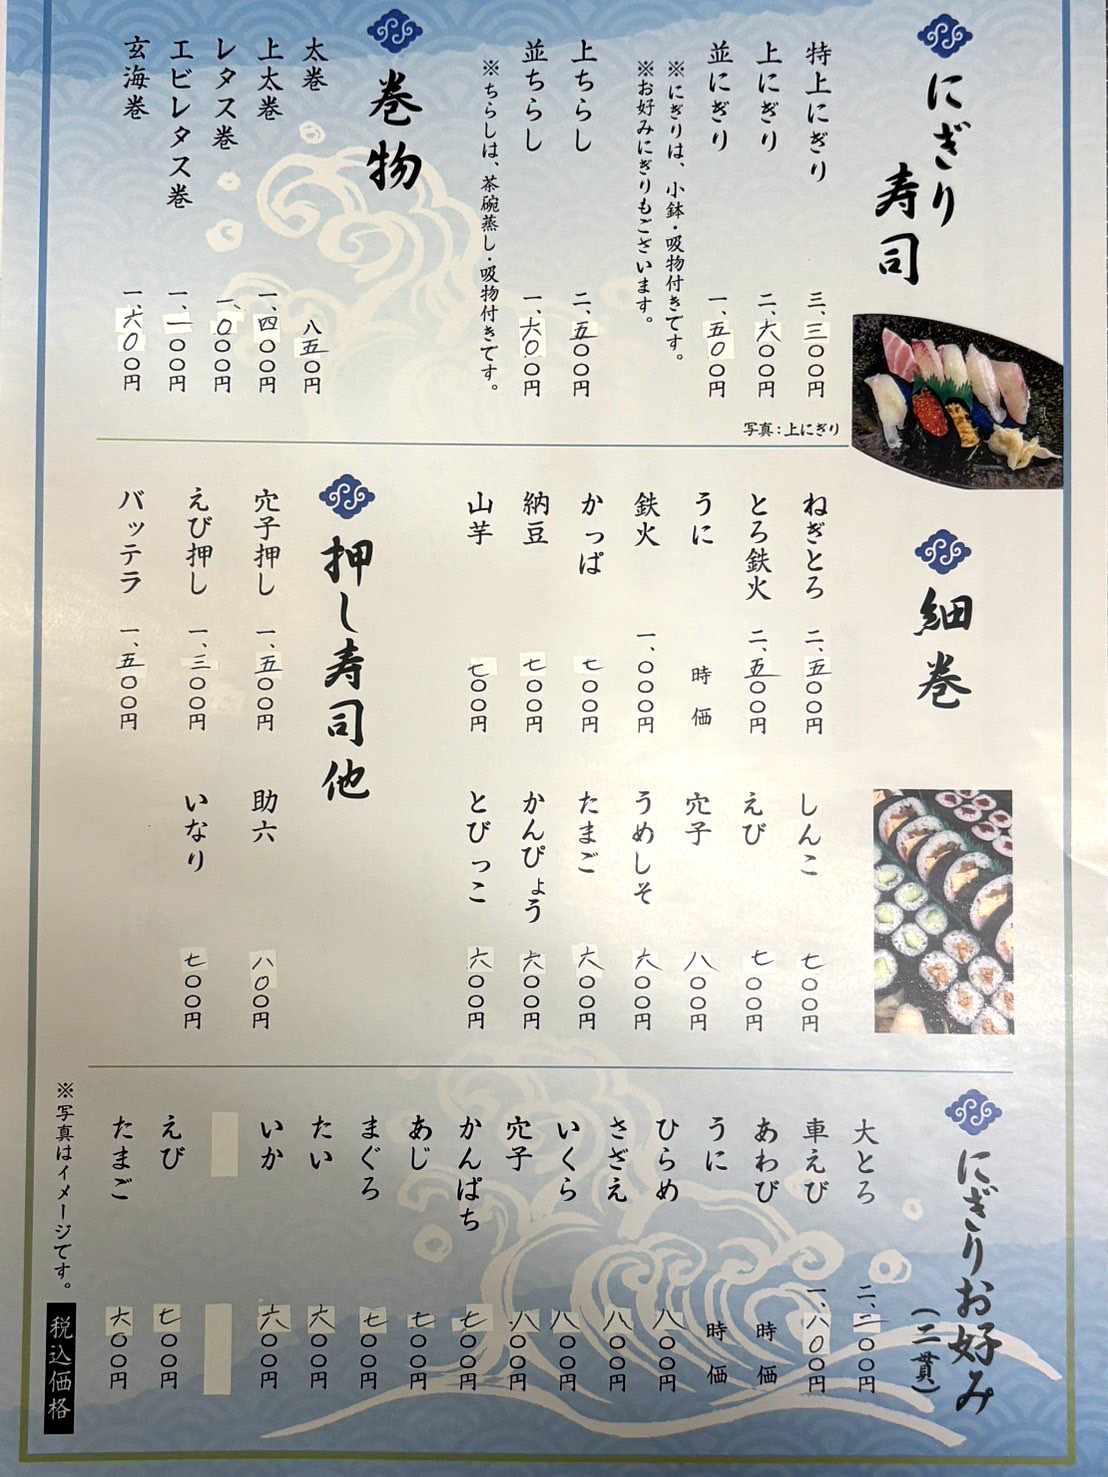 にぎり寿司
特上にぎり 三、三〇〇円
上にぎり 二、六〇〇円
並にぎり 一、五〇〇円
※にぎりは、小鉢・吸物付きです。
※お好みにぎりもございます。
上ちらし 二、五〇〇円
並ちらし 一、六〇〇円
※ちらしは、茶碗蒸し・吸物付きです。
写真：上にぎり
巻物
太巻 八五〇円
上太巻 一、四〇〇円
レタス巻 一、〇〇〇円
エビレタス巻 一、一〇〇円
玄海巻 一、六〇〇円
細巻
ねぎとろ 二、五〇〇円
とろ鉄火 二、五〇〇円
うに 時価
鉄火 一、〇〇〇円
かっぱ 七〇〇円
納豆 七〇〇円
山芋 七〇〇円
しんこ 七〇〇円
えび 七〇〇円
穴子 八〇〇円
うめしそ 六〇〇円
たまご 六〇〇円
かんぴょう 六〇〇円
とびっこ 六〇〇円
押し寿司他
穴子押し 一、五〇〇円
えび押し 一、三〇〇円
バッテラ 一、五〇〇円
助六 八〇〇円
いなり 七〇〇円
にぎりお好み
（二貫）
大とろ 二、二〇〇円
車えび 一、八〇〇円
あわび 時価
うに 時価
ひらめ 八〇〇円
さざえ 八〇〇円
いくら 八〇〇円
穴子 八〇〇円
かんぱち 七〇〇円
あじ 七〇〇円
まぐろ 七〇〇円
たい 六〇〇円
いか 六〇〇円
えび 七〇〇円
たまご 六〇〇円
※写真はイメージです。
税込価格